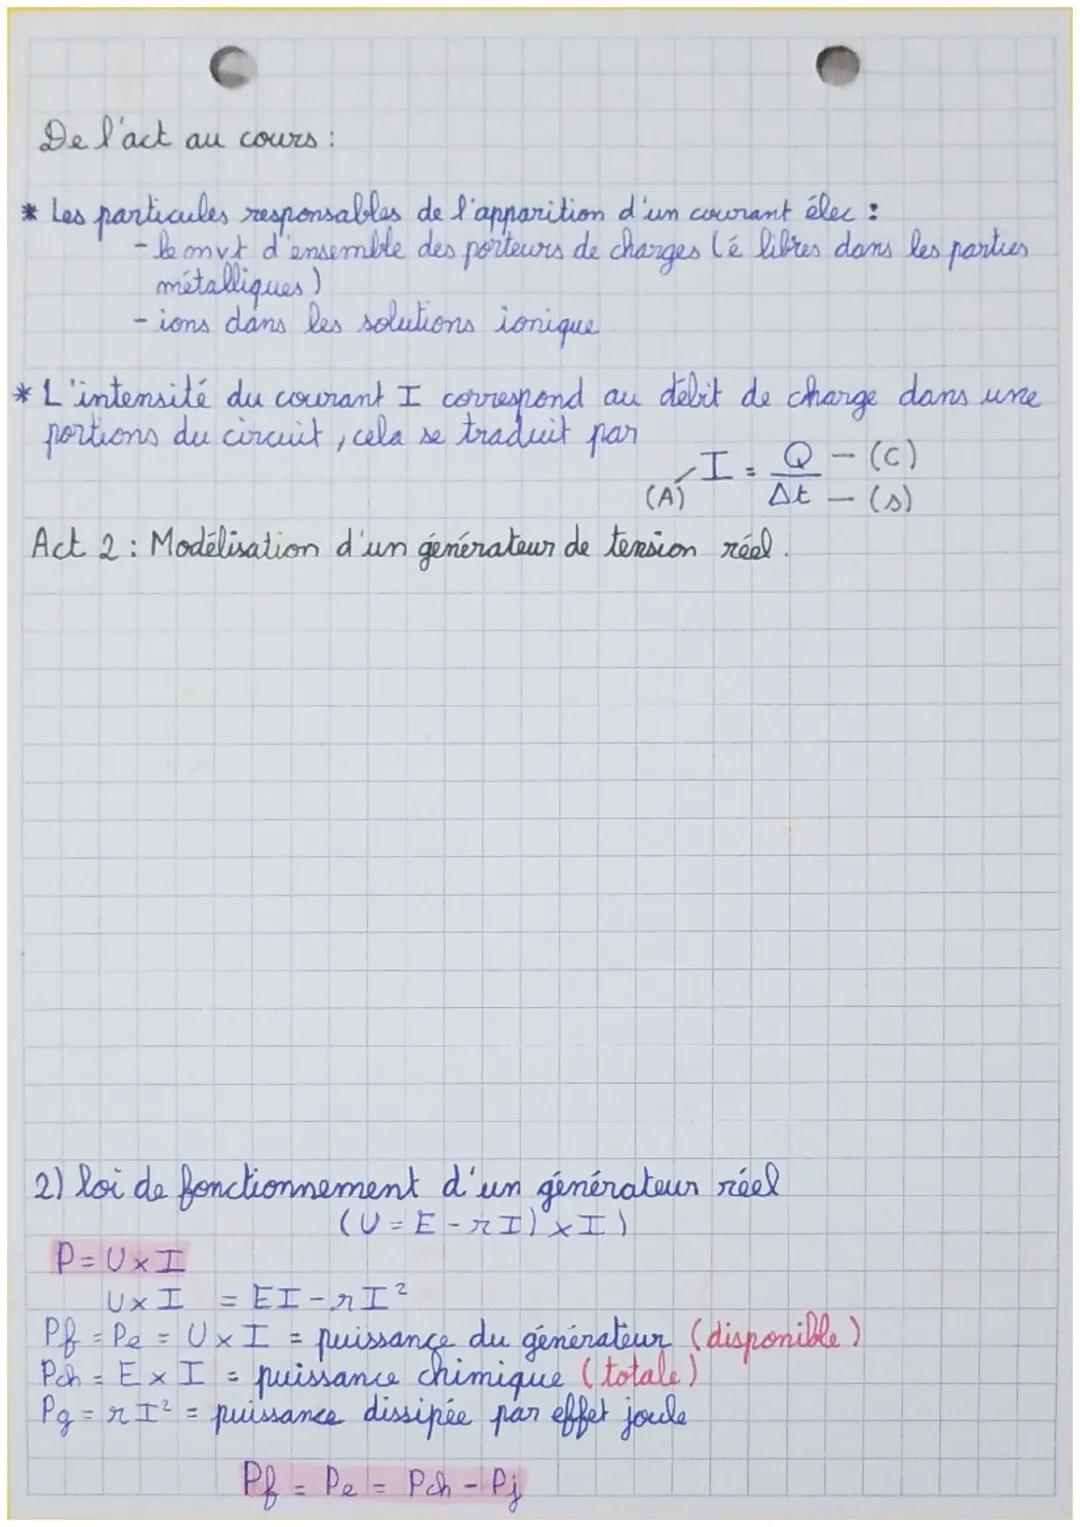 De l'act au cours :
* Les particules responsables de l'apparition d'un courant élec :
- le mvt d'ensemble des porteurs de charges (é libres dans les parties
métalliques)
- ions dans les solutions ionique
* L'intensité du courant I correspond au débit de charge dans une
portions du circuit, cela se traduit par
(A) I = Q/Δt - (C) - (s)
Act 2 : Modélisation d'un générateur de tension réel.
2) loi de fonctionnement d'un générateur réel
(U = E - rI) x I)
P = U x I
U x I = EI - rI²
Pf = Pe = U x I = puissance du générateur (disponible)
Pch = E x I = puissance chimique (totale)
Pg = rI² = puissance dissipée par effet joule
Pf = Pe = Pch - Pj